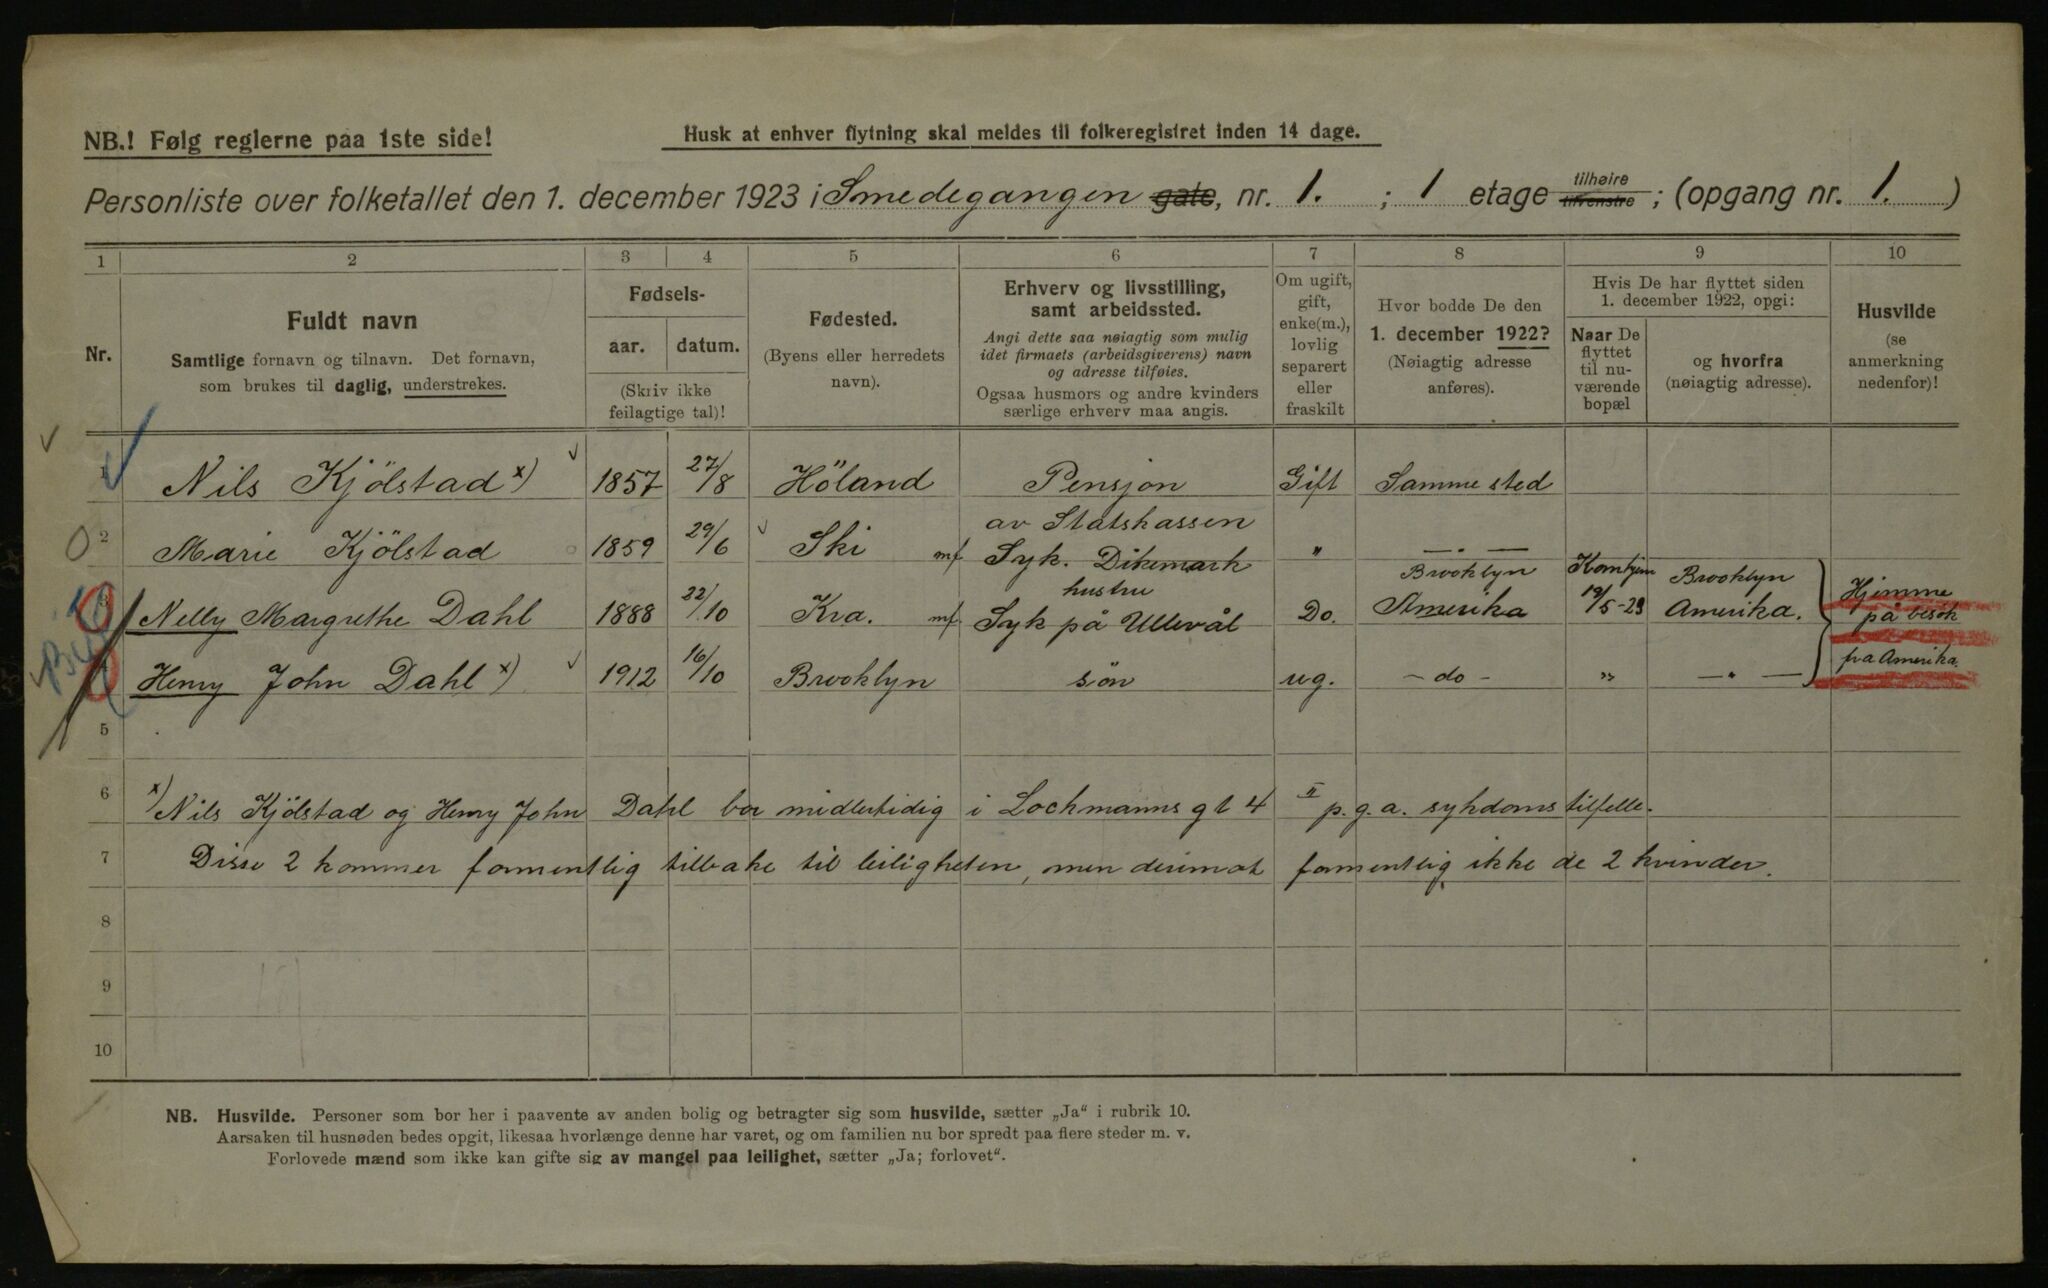 NB.! Følg reglerne paa 1ste side!
Husk at enhver flytning skal meldes til folkeregistret inden 14 dage.
Personliste over folketallet den 1. december 1923 i Smedegangen gate, nr. 1. ; 1 etage tilhøire tilvenstre ; (opgang nr. 1. )
1 2 3 4 5 6 7 8 9 10
Nr.
Fuldt navn
Samtlige fornavn og tilnavn. Det fornavn,
som brukes til daglig, understrekes.
Fødsels-
aar. datum.
(Skriv ikke
feilagtige tal)!
Fødested.
(Byens eller herredets
navn).
Erhverv og livsstilling,
samt arbeidssted.
Angi dette saa nøiagtig som mulig
idet firmaets (arbeidsgiverens) navn
og adresse tilføies.
Ogsaa husmors og andre kvinders
særlige erhverv maa angis.
Om ugift,
gift,
enke(m.),
lovlig
separert
eller
fraskilt
Hvor bodde De den
1. december 1922?
(Nøiagtig adresse
anføres).
Hvis De har flyttet siden
1. december 1922, opgi:
Naar De
flyttet
til nu-
værende
bopæl
og hvorfra
(nøiagtig adresse).
Husvilde
(se
anmerkning
nedenfor)!
1 Nils Kjölstad x) 1857 27/8 Höland Pensjon Gift Samme sted
av Statskassen
2 Marie Kjölstad 1859 29/6 Ski mf Syk. Dikemark " — . —
hustru Brooklyn Kom hjem Brooklyn Hjemme
3 Nelly Margrethe Dahl 1888 22/10 Kra. mf. Syk på Ullevål Do. Amerika 19/5-23 Amerika. på besök
fra Amerika.
4 Henry John Dahl x) 1912 16/10 Brooklyn sön ug. - do - " — " —
5
6 x) Nils Kjölstad og Henry John Dahl bor midlertidig i Lochmanns gt 4 II p.g.a. sykdomstilfelle.
7 Disse 2 kommer formentlig tilbake til leiligheten, men derimot formentlig ikke de 2 kvinder.
8
9
10
NB. Husvilde. Personer som bor her i paavente av anden bolig og betragter sig som husvilde, sætter „Ja“ i rubrik 10.
Aarsaken til husnøden bedes opgit, likesaa hvorlænge denne har varet, og om familien nu bor spredt paa flere steder m. v.
Forlovede mænd som ikke kan gifte sig av mangel paa leilighet, sætter „Ja; forlovet“.